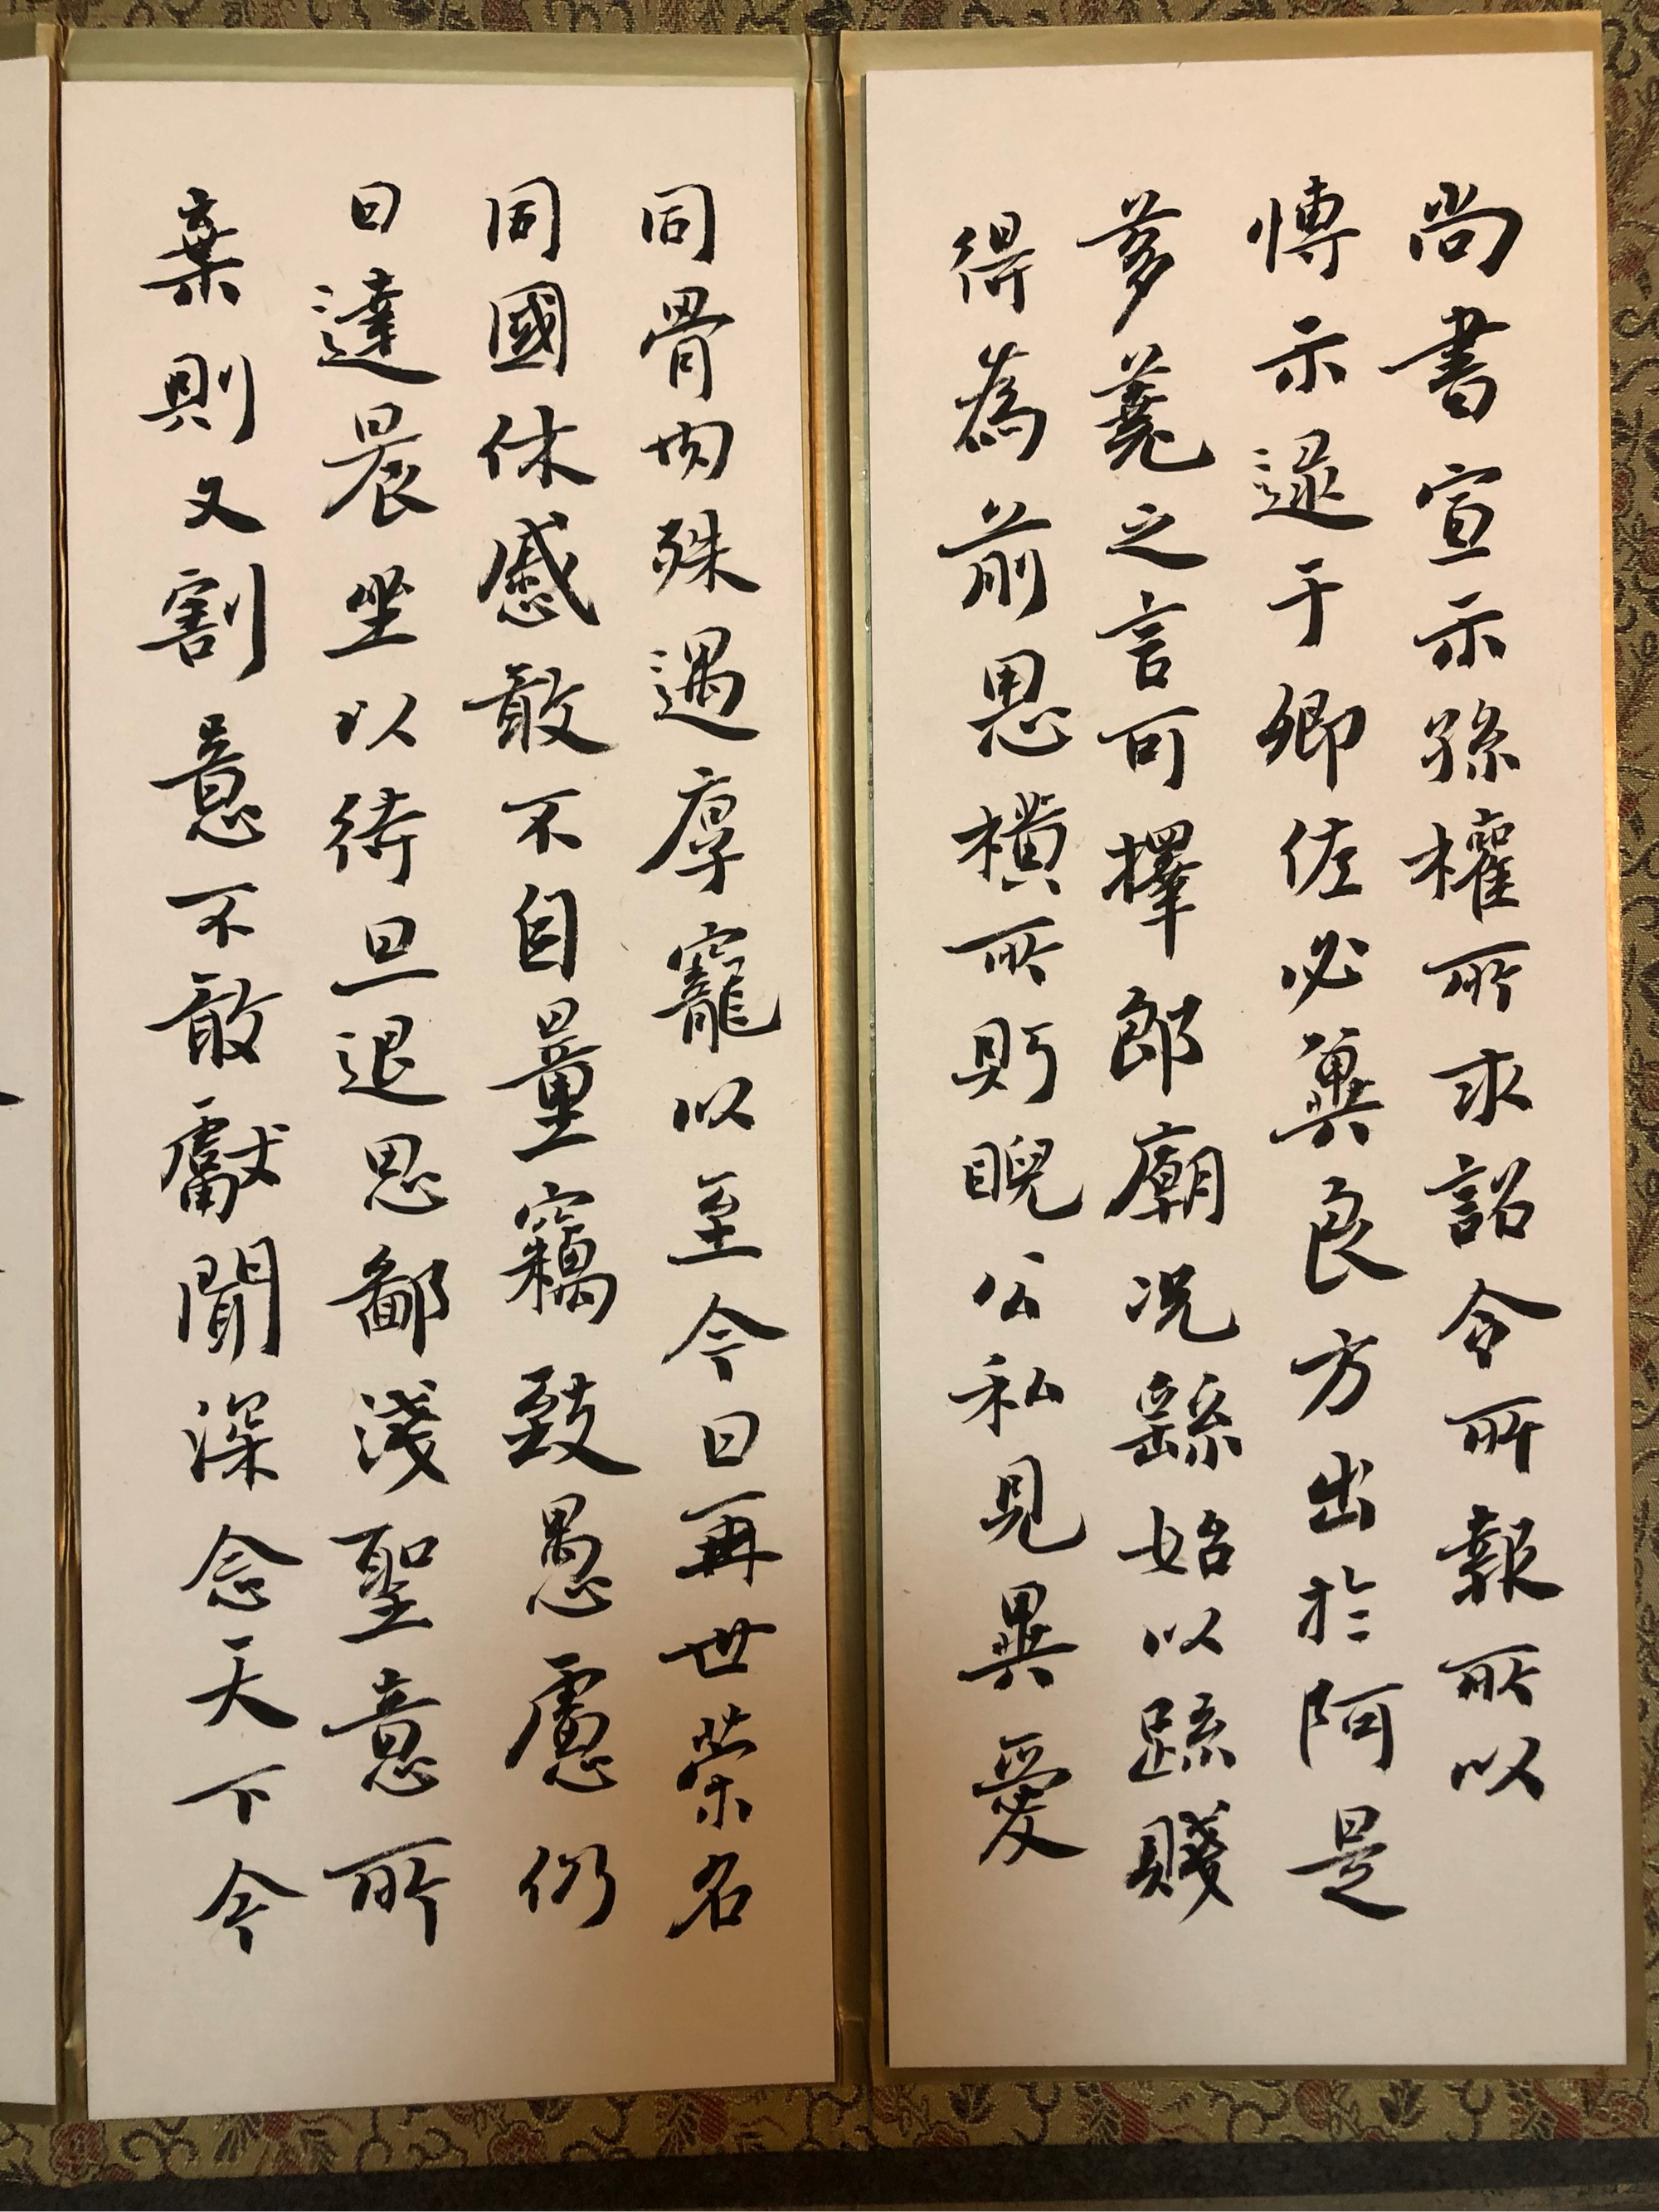 尚書宣示孫權所求詔令所報所以
博示逮于卿佐必冀良方出於阿是
芻蕘之言可擇郎廟況繇始以疏賤
得為前恩橫所盼睨公私見異愛
同骨肉殊遇厚寵以至今日再世榮名
同國休慼敢不自量竊致愚慮仍
日達晨坐以待旦退思鄙淺聖意所
棄則又割意不敢獻聞深念天下今